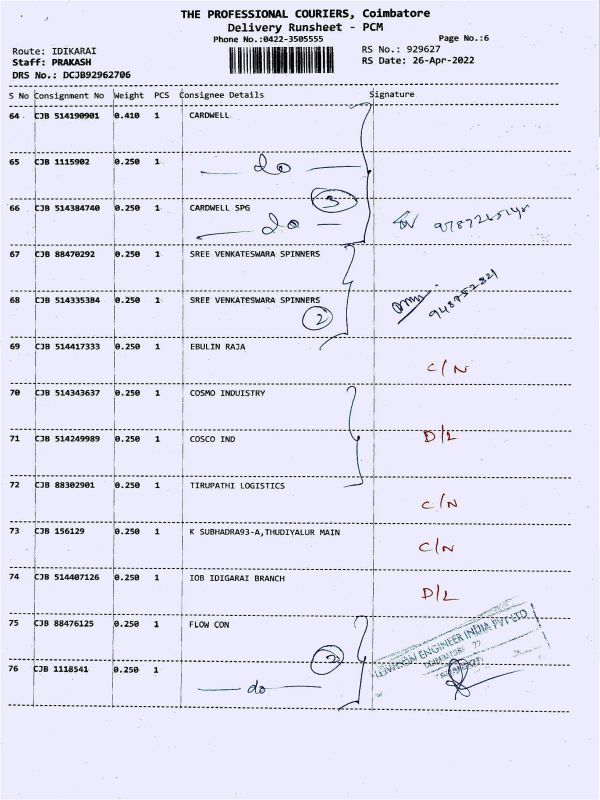 THE PROFESSIONAL COURIERS, Coimbatore
Delivery Runsheet - PCM
Phone No.:0422-3505555
Page No.:6
Route: IDIKARAI
RS No.: 929627
Staff: PRAKASH
RS Date: 26-Apr-2022
DRS No.: DCJB92962706
S No Consignment No Weight PCS Consignee Details Signature
64 CJB 514190901 0.410 1 CARDWELL
65 CJB 1115902 0.250 1 do
3
66 CJB 514384740 0.250 1 CARDWELL SPG
do
67 CJB 88470292 0.250 1 SREE VENKATESWARA SPINNERS
68 CJB 514335384 0.250 1 SREE VENKATESWARA SPINNERS
2
69 CJB 514417333 0.250 1 EBULIN RAJA
C/N
70 CJB 514343637 0.250 1 COSMO INDUISTRY
71 CJB 514249989 0.250 1 COSCO IND D/L
72 CJB 88302901 0.250 1 TIRUPATHI LOGISTICS
C/N
73 CJB 156129 0.250 1 K SUBHADRA93-A,THUDIYALUR MAIN
C/N
74 CJB 514407126 0.250 1 IOB IDIGARAI BRANCH
D/L
75 CJB 88476125 0.250 1 FLOW CON
ENGINEER INDIA PVT LTD
2
76 CJB 1118541 0.250 1
do